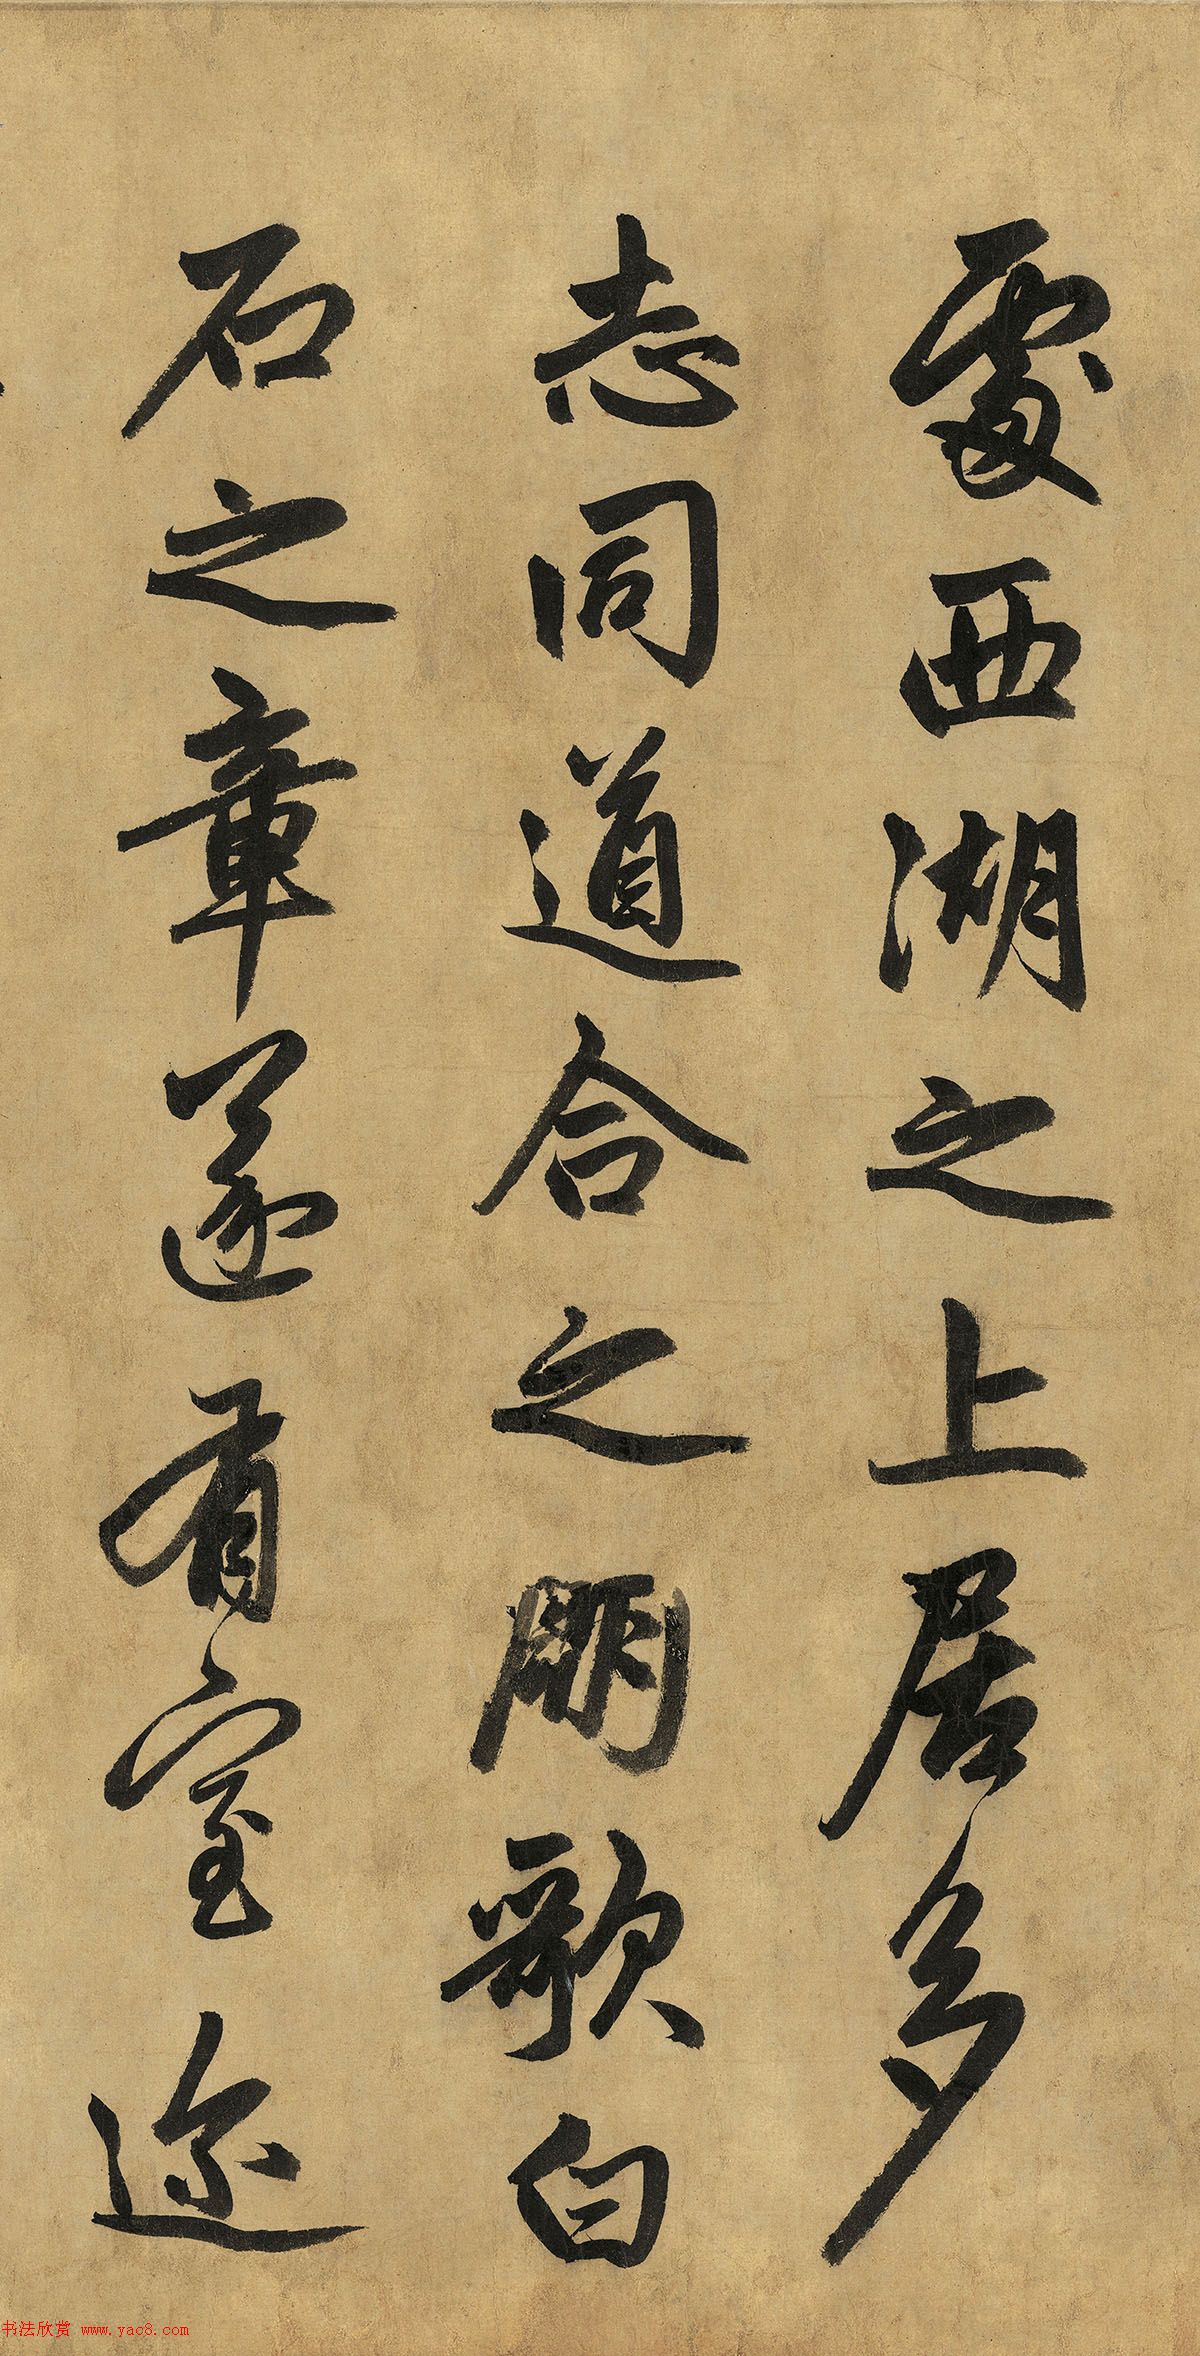 處西湖之上居多
志同道合之朋歌白
石之章遂有室迩
书法欣赏 www.yac8.com